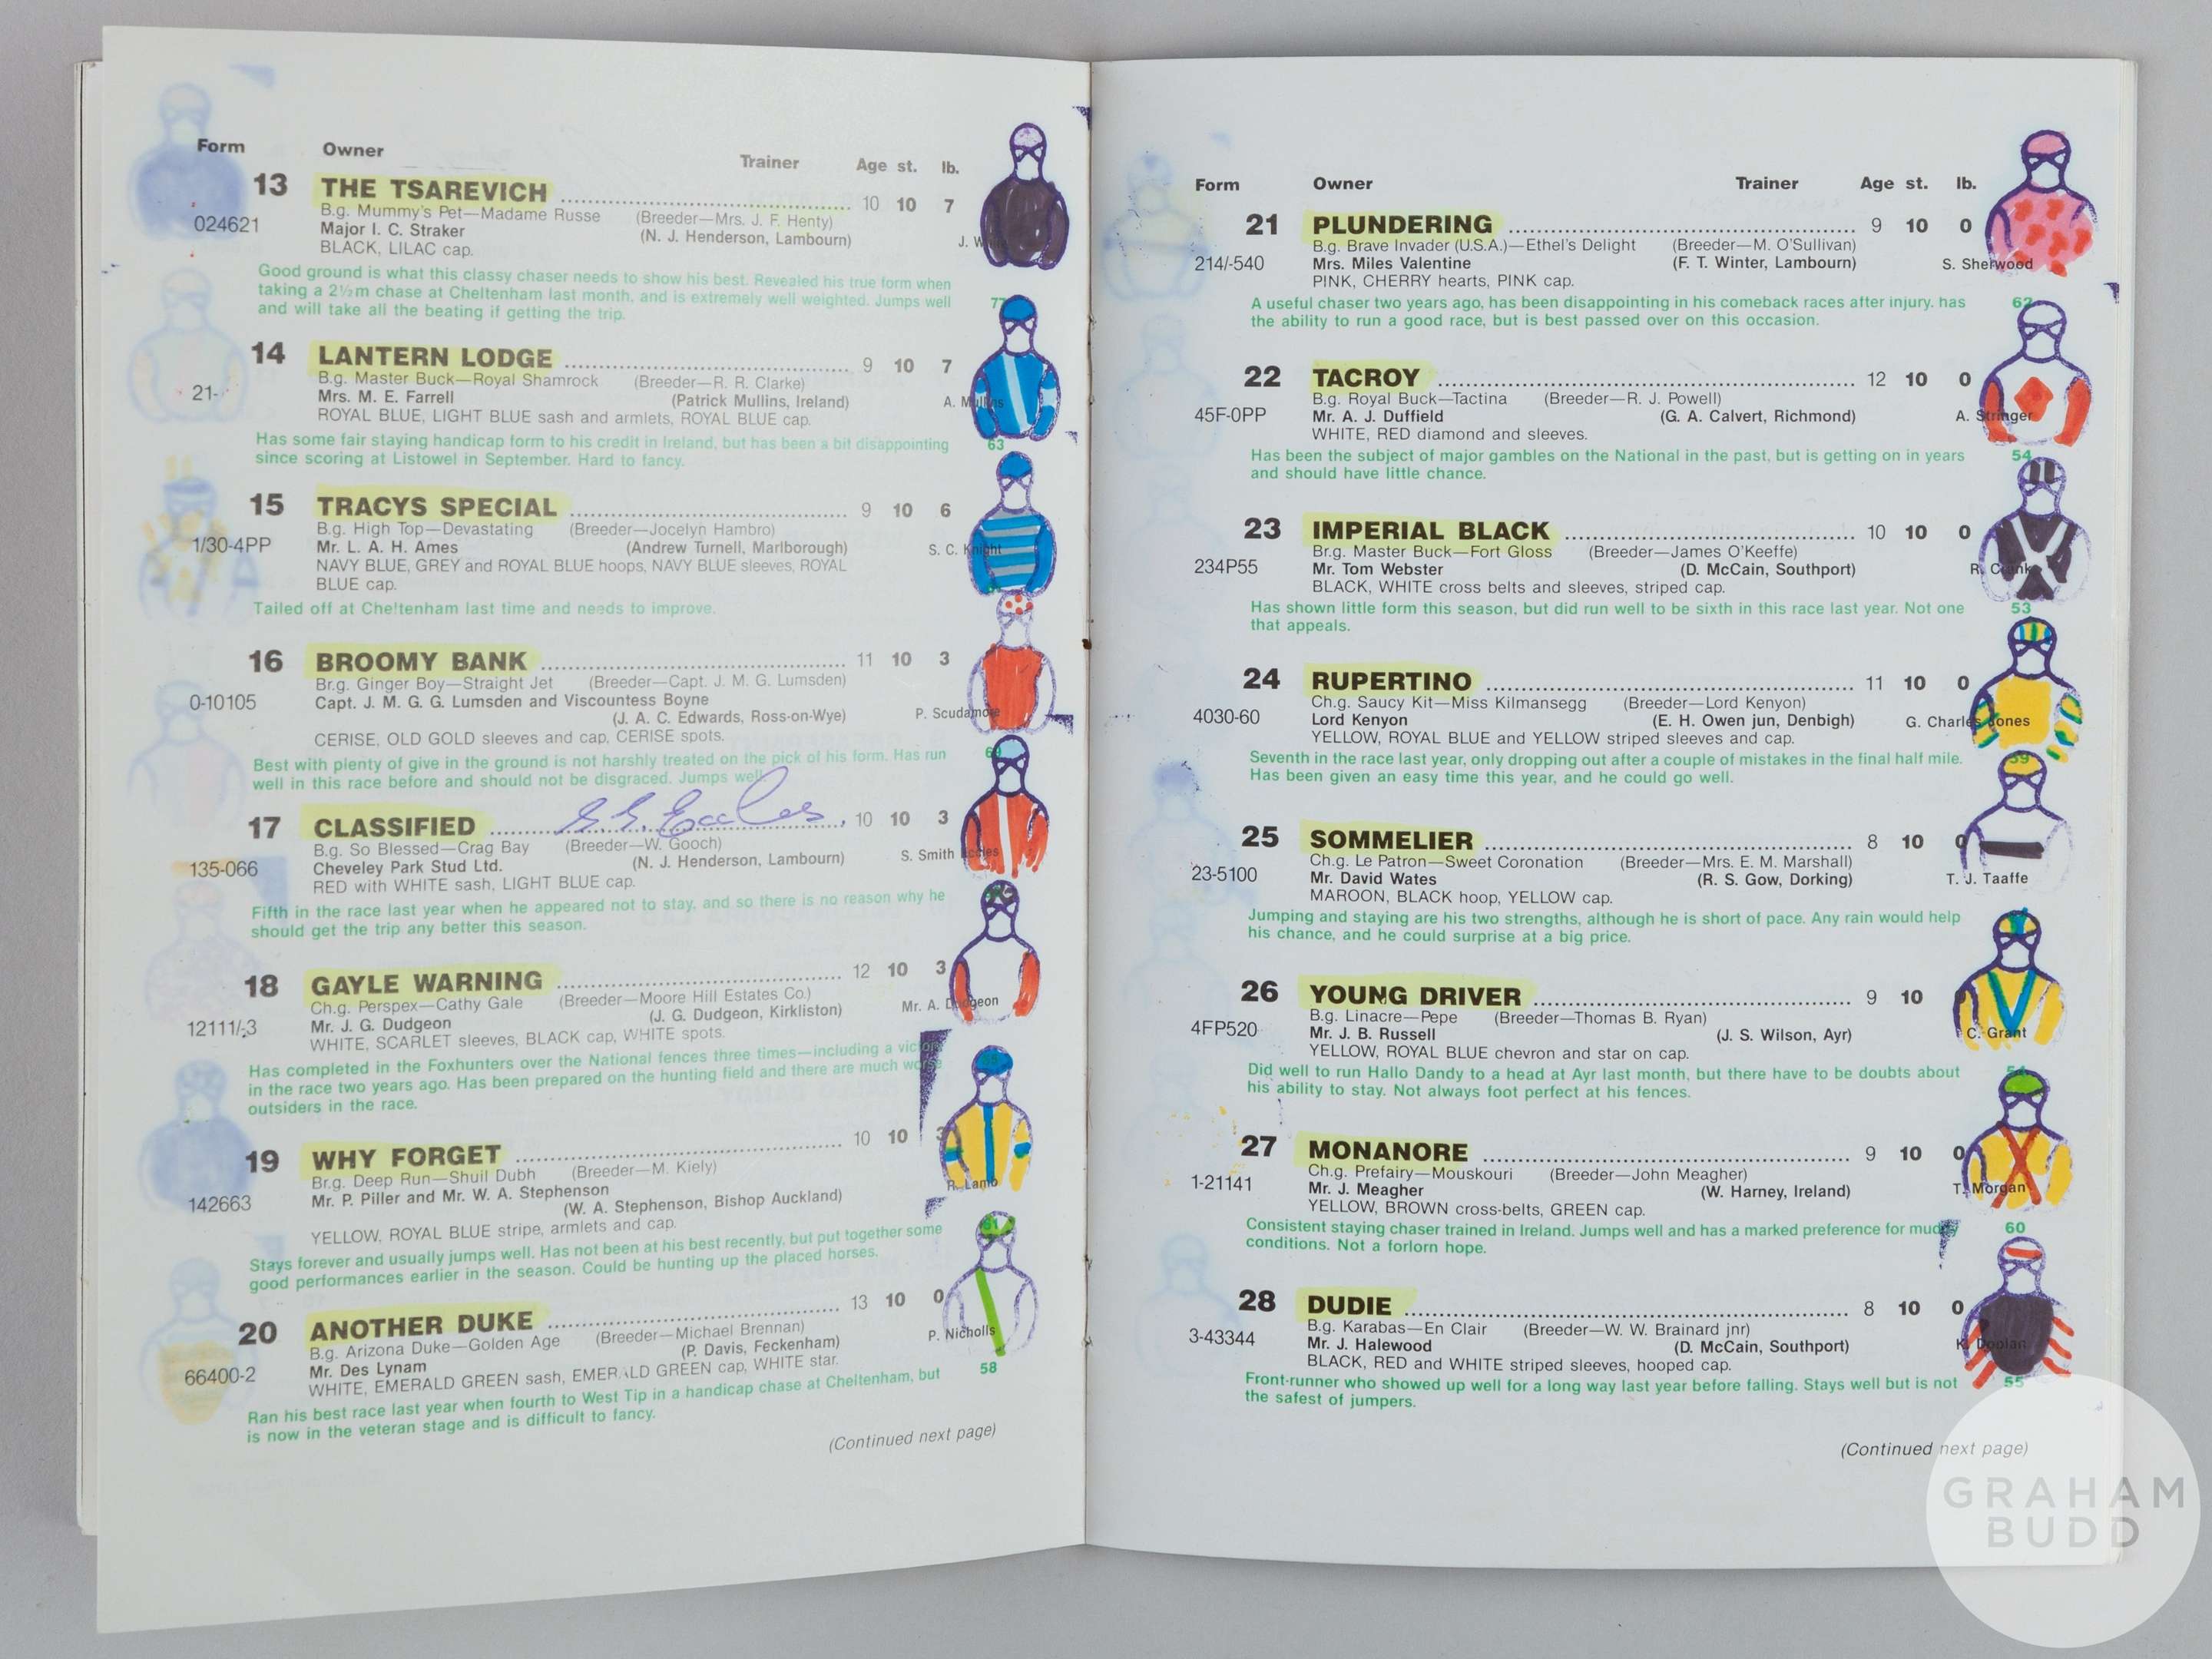 Form Owner Trainer Age st. lb.
13 THE TSAREVICH 10 10 7
B.g. Mummy's Pet—Madame Russe (Breeder—Mrs. J. F. Henty)
024621 Major I. C. Straker (N. J. Henderson, Lambourn) J.
BLACK, LILAC cap.
Good ground is what this classy chaser needs to show his best. Revealed his true form when
taking a 2½m chase at Cheltenham last month, and is extremely well weighted. Jumps well 77
and will take all the beating if getting the trip.
14 LANTERN LODGE 9 10 7
B.g. Master Buck—Royal Shamrock (Breeder—R. R. Clarke)
21- Mrs. M. E. Farrell (Patrick Mullins, Ireland) A. Mullins
ROYAL BLUE, LIGHT BLUE sash and armlets, ROYAL BLUE cap.
Has some fair staying handicap form to his credit in Ireland, but has been a bit disappointing 63
since scoring at Listowel in September. Hard to fancy.
15 TRACYS SPECIAL 9 10 6
B.g. High Top—Devastating (Breeder—Jocelyn Hambro)
1/30-4PP Mr. L. A. H. Ames (Andrew Turnell, Marlborough) S. C. Knight
NAVY BLUE, GREY and ROYAL BLUE hoops, NAVY BLUE sleeves, ROYAL
BLUE cap.
Tailed off at Cheltenham last time and needs to improve.
16 BROOMY BANK 11 10 3
Br.g. Ginger Boy—Straight Jet (Breeder—Capt. J. M. G. Lumsden)
0-10105 Capt. J. M. G. G. Lumsden and Viscountess Boyne
(J. A. C. Edwards, Ross-on-Wye) P. Scudamore
CERISE, OLD GOLD sleeves and cap, CERISE spots.
Best with plenty of give in the ground is not harshly treated on the pick of his form. Has run
well in this race before and should not be disgraced. Jumps well
17 CLASSIFIED S. S. Eccles 10 10 3
B.g. So Blessed—Crag Bay (Breeder—W. Gooch)
135-066 Cheveley Park Stud Ltd. (N. J. Henderson, Lambourn) S. Smith Eccles
RED with WHITE sash, LIGHT BLUE cap.
Fifth in the race last year when he appeared not to stay, and so there is no reason why he
should get the trip any better this season.
18 GAYLE WARNING 12 10 3
Ch.g. Perspex—Cathy Gale (Breeder—Moore Hill Estates Co.)
12111/-3 Mr. J. G. Dudgeon (J. G. Dudgeon, Kirkliston) Mr. A. Dudgeon
WHITE, SCARLET sleeves, BLACK cap, WHITE spots.
Has completed in the Foxhunters over the National fences three times—including a victory
in the race two years ago. Has been prepared on the hunting field and there are much worse
outsiders in the race.
19 WHY FORGET 10 10 3
Br.g. Deep Run—Shuil Dubh (Breeder—M. Kiely)
142663 Mr. P. Piller and Mr. W. A. Stephenson
(W. A. Stephenson, Bishop Auckland) R. Lamb
YELLOW, ROYAL BLUE stripe, armlets and cap.
Stays forever and usually jumps well. Has not been at his best recently, but put together some 61
good performances earlier in the season. Could be hunting up the placed horses.
20 ANOTHER DUKE 13 10 0
B.g. Arizona Duke—Golden Age (Breeder—Michael Brennan)
66400-2 Mr. Des Lynam (P. Davis, Feckenham) P. Nicholls
WHITE, EMERALD GREEN sash, EMERALD GREEN cap, WHITE star.
Ran his best race last year when fourth to West Tip in a handicap chase at Cheltenham, but 58
is now in the veteran stage and is difficult to fancy.
(Continued next page)
Form Owner Trainer Age st. lb.
21 PLUNDERING 9 10 0
B.g. Brave Invader (U.S.A.)—Ethel's Delight (Breeder—M. O'Sullivan)
214/-540 Mrs. Miles Valentine (F. T. Winter, Lambourn) S. Sherwood
PINK, CHERRY hearts, PINK cap.
A useful chaser two years ago, has been disappointing in his comeback races after injury. has 62
the ability to run a good race, but is best passed over on this occasion.
22 TACROY 12 10 0
B.g. Royal Buck—Tactina (Breeder—R. J. Powell)
45F-0PP Mr. A. J. Duffield (G. A. Calvert, Richmond) A. Stringer
WHITE, RED diamond and sleeves.
Has been the subject of major gambles on the National in the past, but is getting on in years 54
and should have little chance.
23 IMPERIAL BLACK 10 10 0
Br.g. Master Buck—Fort Gloss (Breeder—James O'Keeffe)
234P55 Mr. Tom Webster (D. McCain, Southport) R. Crank
BLACK, WHITE cross belts and sleeves, striped cap.
Has shown little form this season, but did run well to be sixth in this race last year. Not one 53
that appeals.
24 RUPERTINO 11 10 0
Ch.g. Saucy Kit—Miss Kilmansegg (Breeder—Lord Kenyon)
4030-60 Lord Kenyon (E. H. Owen jun, Denbigh) G. Charles Jones
YELLOW, ROYAL BLUE and YELLOW striped sleeves and cap.
Seventh in the race last year, only dropping out after a couple of mistakes in the final half mile. 59
Has been given an easy time this year, and he could go well.
25 SOMMELIER 8 10 0
Ch.g. Le Patron—Sweet Coronation (Breeder—Mrs. E. M. Marshall)
23-5100 Mr. David Wates (R. S. Gow, Dorking) T. J. Taaffe
MAROON, BLACK hoop, YELLOW cap.
Jumping and staying are his two strengths, although he is short of pace. Any rain would help
his chance, and he could surprise at a big price.
26 YOUNG DRIVER 9 10
B.g. Linacre—Pepe (Breeder—Thomas B. Ryan)
4FP520 Mr. J. B. Russell (J. S. Wilson, Ayr) C. Grant
YELLOW, ROYAL BLUE chevron and star on cap.
Did well to run Hallo Dandy to a head at Ayr last month, but there have to be doubts about
his ability to stay. Not always foot perfect at his fences.
27 MONANORE 9 10 0
Ch.g. Prefairy—Mouskouri (Breeder—John Meagher)
1-21141 Mr. J. Meagher (W. Harney, Ireland) T. Morgan
YELLOW, BROWN cross-belts, GREEN cap.
Consistent staying chaser trained in Ireland. Jumps well and has a marked preference for muddy 60
conditions. Not a forlorn hope.
28 DUDIE 8 10 0
B.g. Karabas—En Clair (Breeder—W. W. Brainard jnr)
3-43344 Mr. J. Halewood (D. McCain, Southport) K. Doolan
BLACK, RED and WHITE striped sleeves, hooped cap.
Front-runner who showed up well for a long way last year before falling. Stays well but is not 55
the safest of jumpers.
(Continued next page)
GRAHAM
BUDD